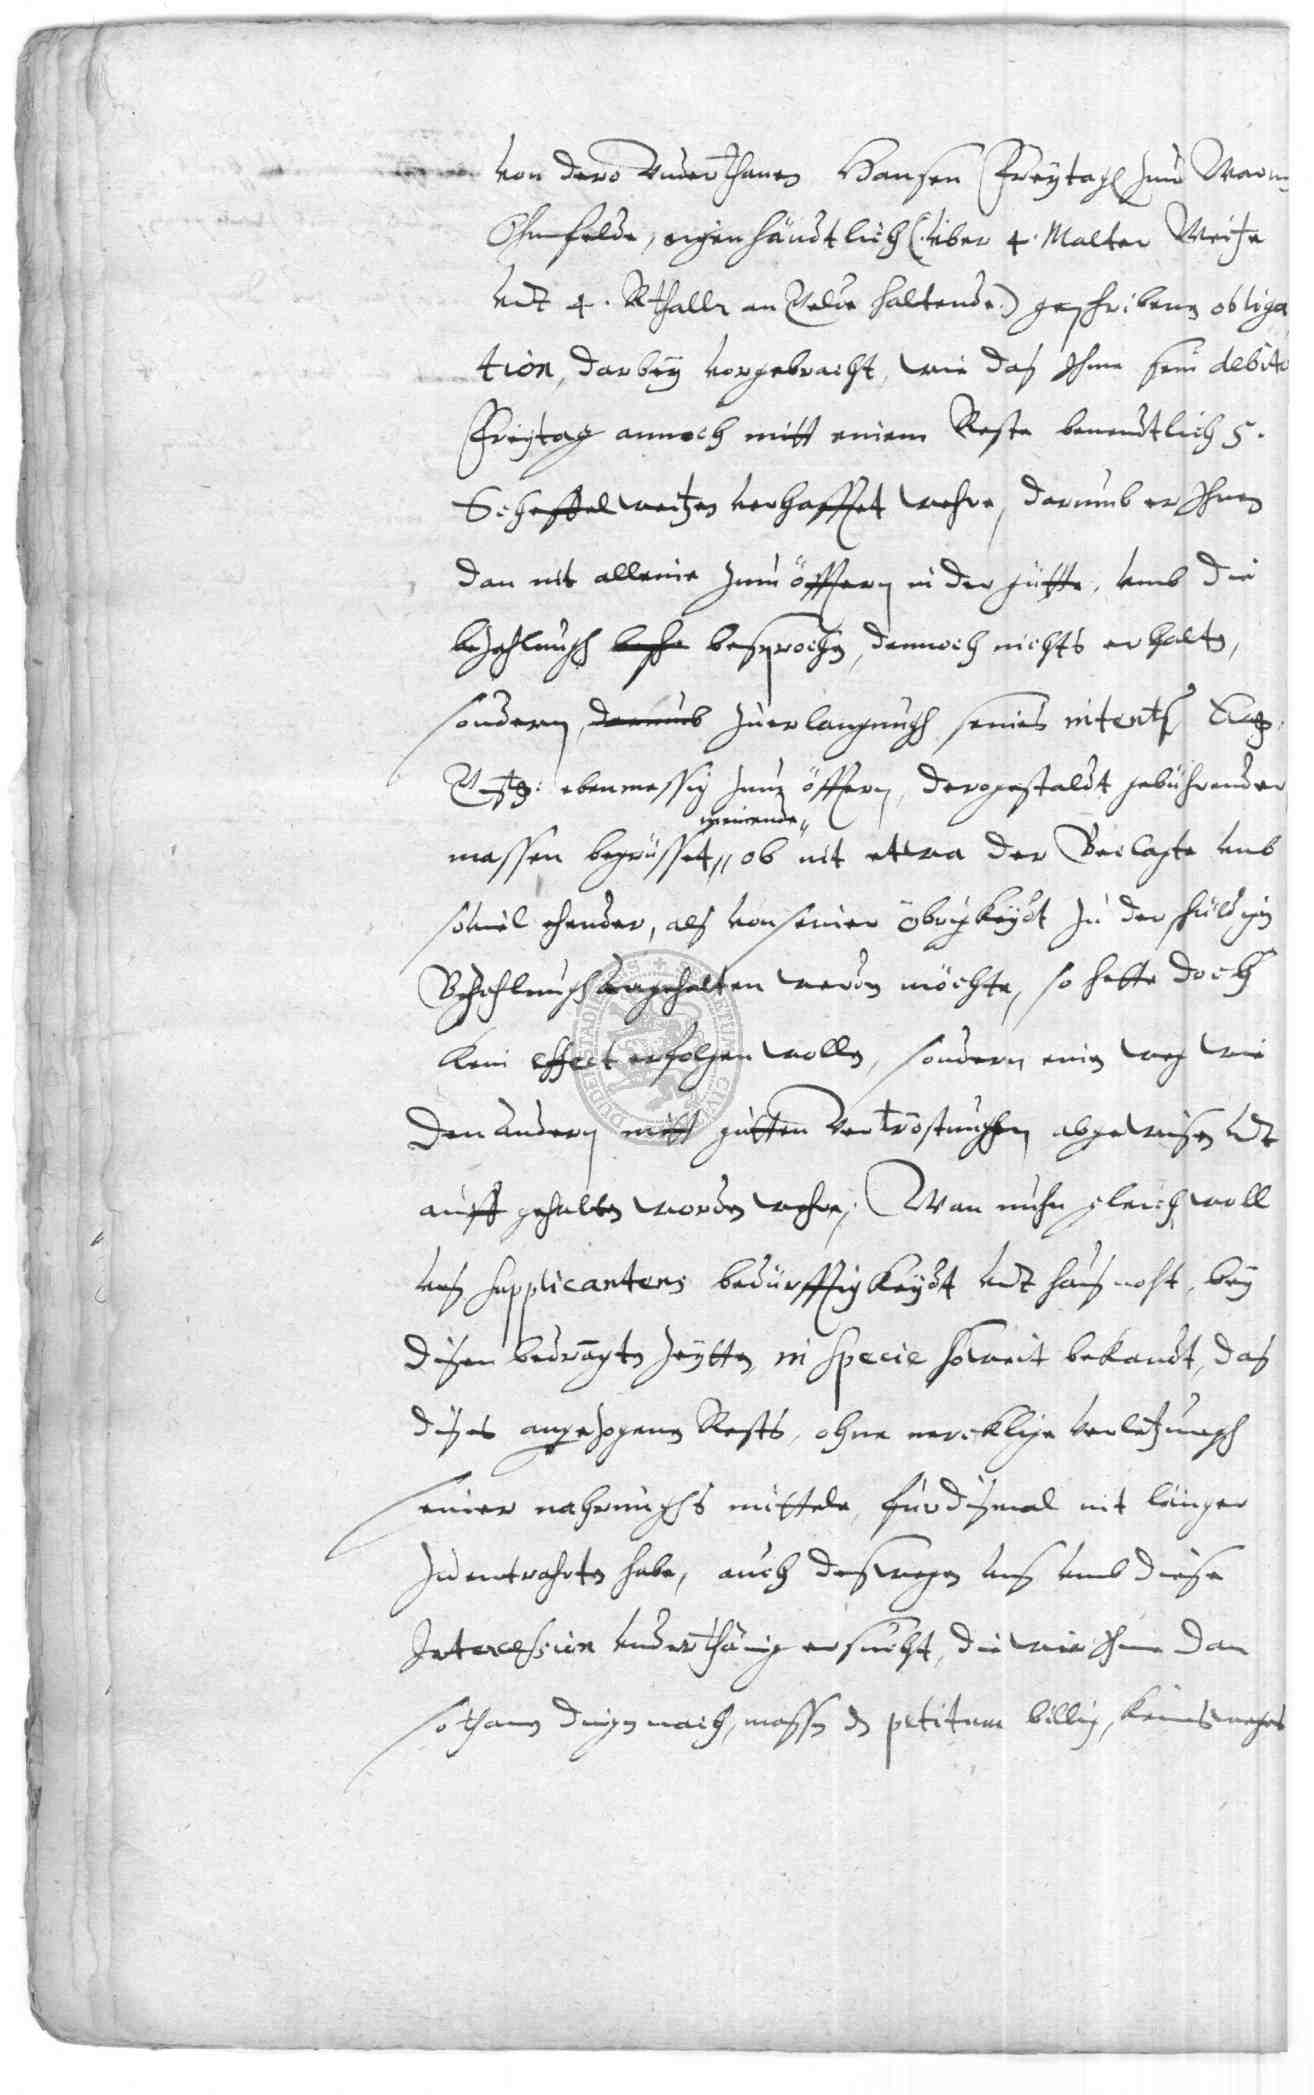 von dero Underthanen Hansen Freytagh zum Warm
Ohmfelde, eigenhändtlich (: über 4. Malter Weitze
undt 4. Rthalle an Gelde haltende :) geschribene obliga
tion, darbey vorgebracht, wie das Ihme sein debito
Freytag annoch mitt einem Reste benendtlich 5.
Scheffel weitzen verhafftet wehre, darumb er Ihnen
dan nit alleine zum öfftern in der gütte, umb die
bezahlungh besprochen, dennoch nichts erhalten,
sondern, darumb zuerlangungh seines intents
ebenmessig zum öfftern, dergestaldt gebührender
meinende
massen begrüsset, ob nit etwa der Beclagte umb
soviel ehender, als von seiner Obrigkeydt zu der schuldigen
Bezahlungh angehalten werden möchte, so hette doch
kein effect erfolgen wollen, sondern einen weg wie
den andern mitt gutten vertröstunghen abgewisen undt
auffgehalten worden wehre, Wan nuhn gleichwoll
uns supplicantens bedürfftigkeydt undt hausnoht, bey
disen bedrängten Zeytten, in specie soweit bekandt, das
dises angezogenen Rests, ohne mercklige verletzungh
seiner nahrunghs mittele, für dismal nit länger
zu entrahten habe, auch deswegen uns umb diese
Intercession underthänig ersucht, die wir Ihme dan
sothanen dingen nach, massen petitum billig, keinesweges
CIVI
DUDERSTADIE